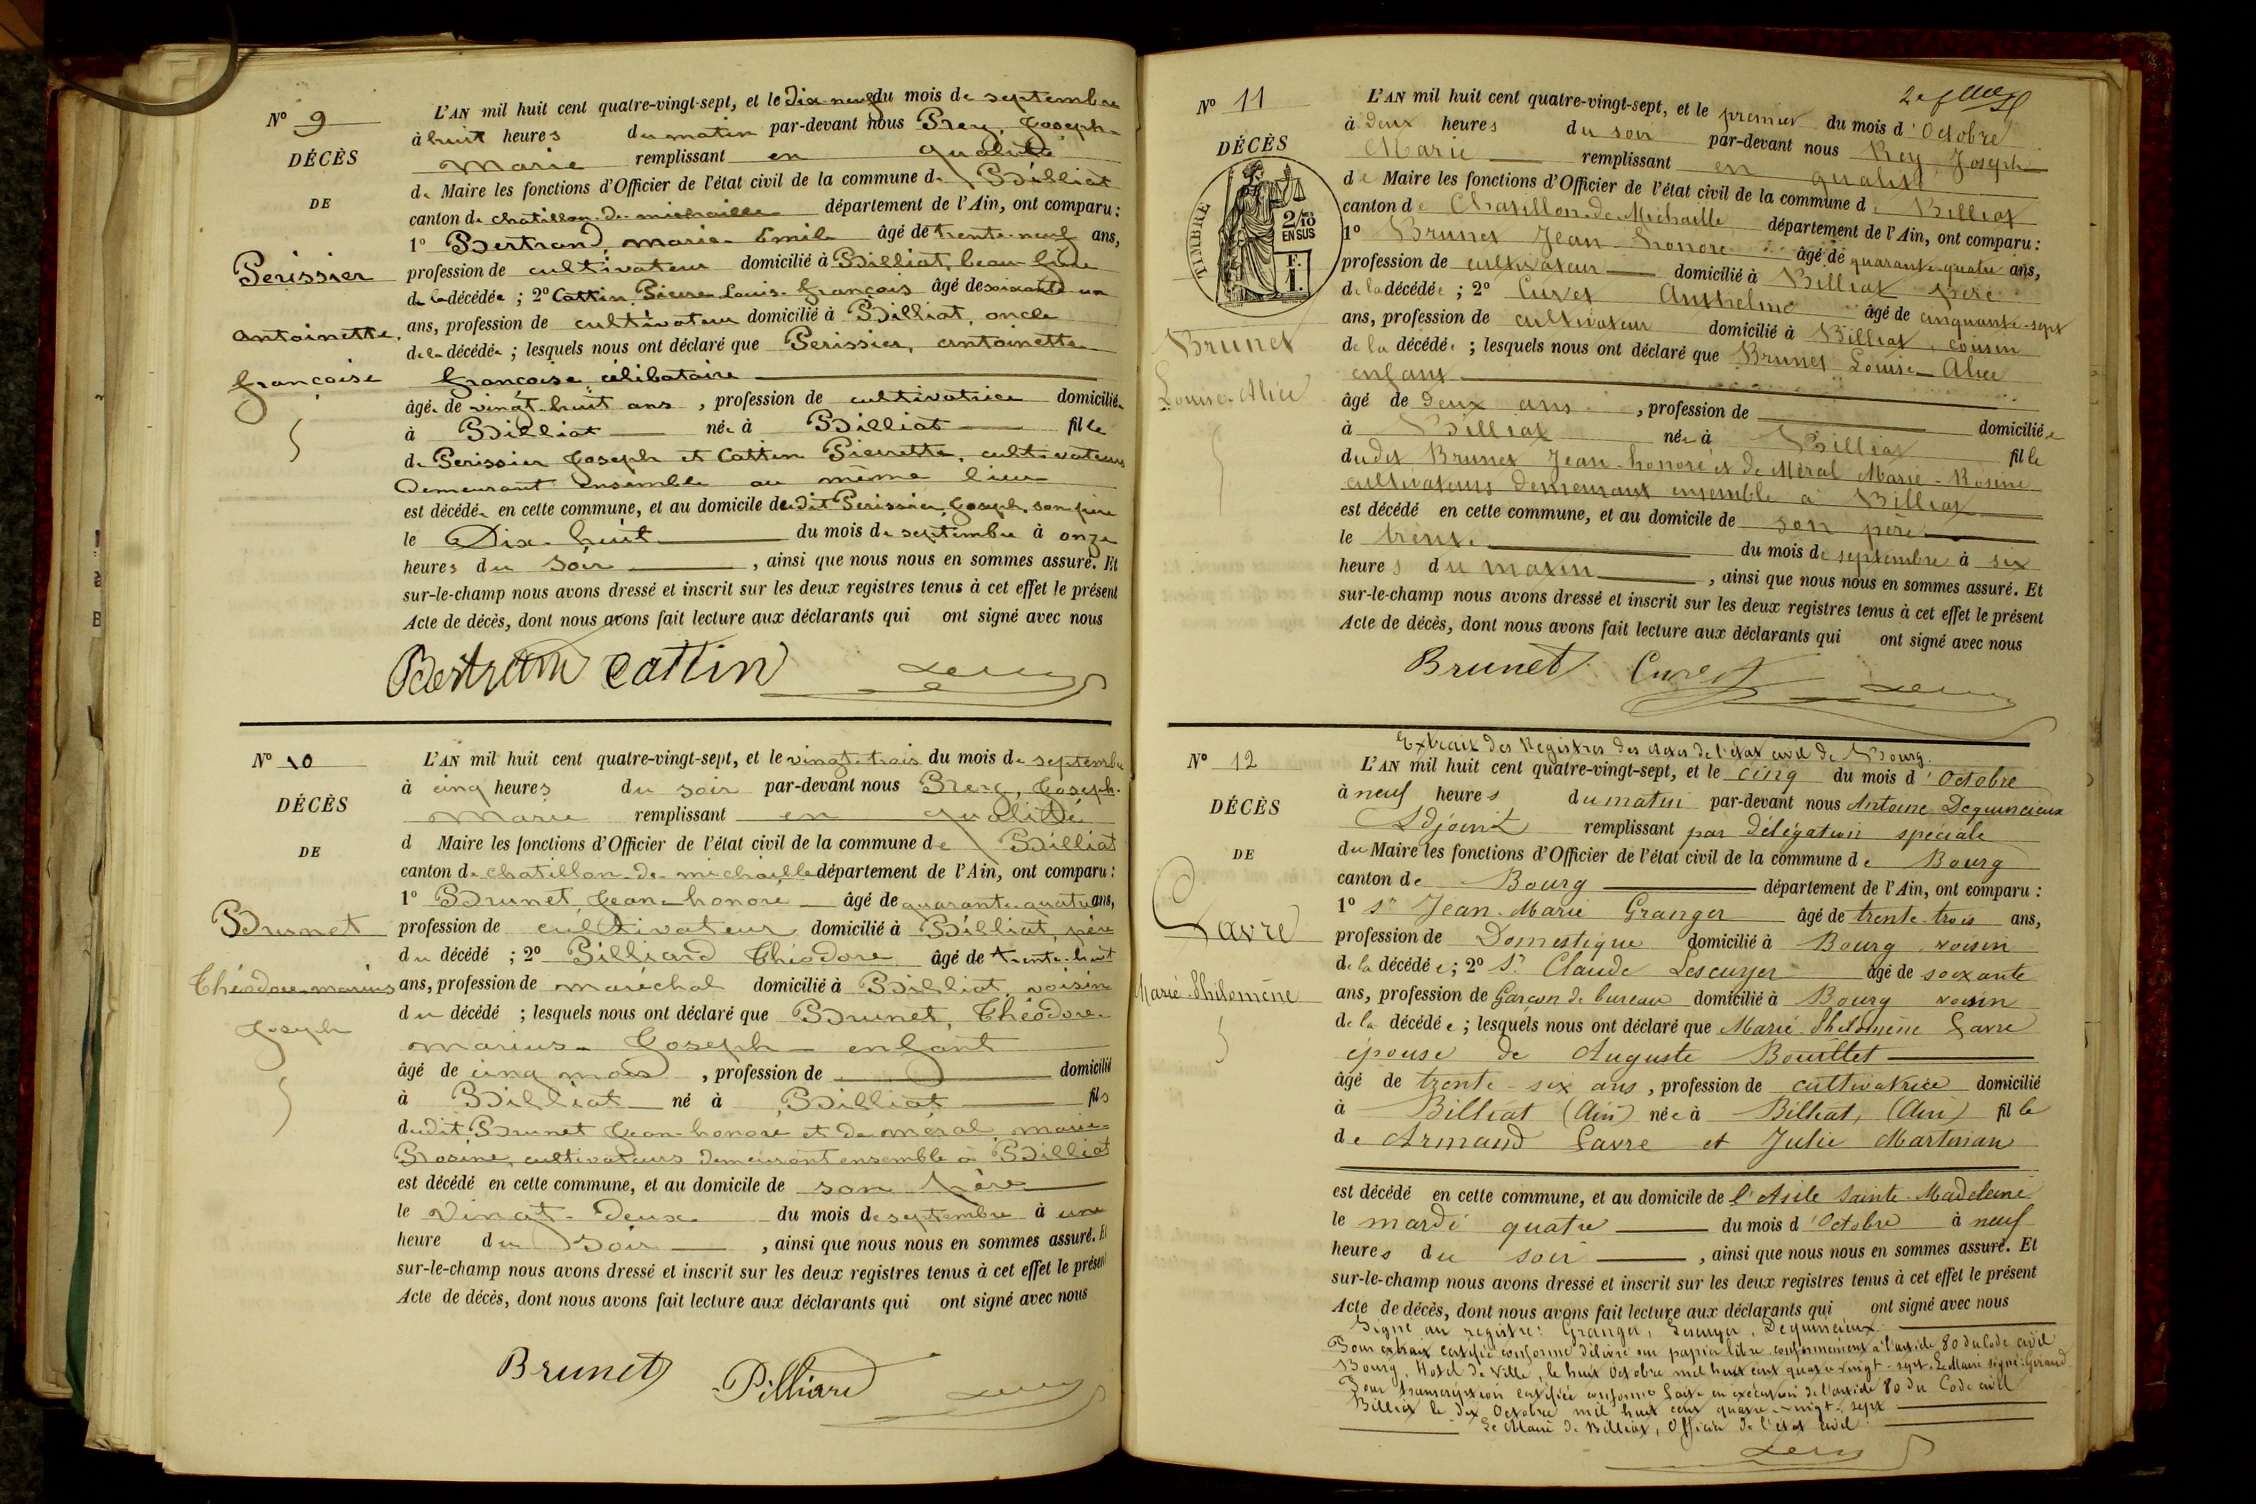 N° 9
DÉCÈS
DE
Perissier
Antoinette
Françoise
L'AN mil huit cent quatre-vingt-sept, et le dix neuf du mois de septembre
à huit heures du matin par-devant nous Joseph
Marie remplissant en qualité
de Maire les fonctions d'Officier de l'état civil de la commune de Billiat
canton de chatillon de michaille département de l'Ain, ont comparu :
1° Bertrand, marie Emile âgé de trente-neuf ans,
profession de cultivateur domicilié à Billiat, beau frère
de la décédée ; 2° Cattin, Pierre Louis François âgé de soixante un
ans, profession de cultivateur domicilié à Billiat, oncle
de la décédée ; lesquels nous ont déclaré que Perissier, antoinette
françoise célibataire
âgée de vingt-huit ans, profession de cultivatrice domiciliée
à Billiat née à Billiat fille
de Perissier Joseph et Cattin Pierrette, cultivateurs
Demeurant ensemble au même lieu
est décédée en cette commune, et au domicile dudit Perissier, Joseph, son père
le Dix-huit du mois de septembre à onze
heures du soir, ainsi que nous nous en sommes assuré. Et
sur-le-champ nous avons dressé et inscrit sur les deux registres tenus à cet effet le présent
Acte de décès, dont nous avons fait lecture aux déclarants qui ont signé avec nous
Bertrand Cattin
N° 10
DÉCÈS
DE
Brunet
Théodore-marius
Joseph
L'AN mil huit cent quatre-vingt-sept, et le vingt-trois du mois de septembre
à cinq heures du soir par-devant nous Joseph-
Marie remplissant en qualité
d Maire les fonctions d'Officier de l'état civil de la commune de Billiat
canton de chatillon-de-michaille département de l'Ain, ont comparu :
1° Brunet, Jean-honoré âgé de quarante-quatre ans,
profession de cultivateur domicilié à Billiat, père
du décédé ; 2° Pilliard Théodore âgé de trente-huit
ans, profession de maréchal domicilié à Billiat, voisin
du décédé ; lesquels nous ont déclaré que Brunet, Théodore-
marius-Joseph-enfant
âgé de cinq mois, profession de domicilié
à Billiat né à Billiat fils
dudit Brunet Jean-honoré et de méral, marie-
Rosine, cultivateurs demeurant ensemble à Billiat
est décédé en cette commune, et au domicile de son père
le vingt-deux du mois de septembre à une
heure du soir, ainsi que nous nous en sommes assuré. Et
sur-le-champ nous avons dressé et inscrit sur les deux registres tenus à cet effet le présent
Acte de décès, dont nous avons fait lecture aux déclarants qui ont signé avec nous
Brunet Pilliard
N° 11
DÉCÈS
TIMBRE
2/10es
EN SUS
F.
1.
Brunet
Louise-Alice
L'AN mil huit cent quatre-vingt-sept, et le premier du mois d'Octobre
à deux heures du soir par-devant nous Rey, Joseph
Marie remplissant en qualité
de Maire les fonctions d'Officier de l'état civil de la commune de Billiat
canton de Chatillon-de-Michaille département de l'Ain, ont comparu :
1° Brunet Jean-honoré âgé de quarante-quatre ans,
profession de cultivateur domicilié à Billiat père
de la décédée ; 2° Curvet Anthelme âgé de cinquante-sept
ans, profession de cultivateur domicilié à Billiat, cousin
de la décédée ; lesquels nous ont déclaré que Brunet Louise-Alice
enfant
âgé de deux ans, profession de domiciliée
à Billiat née à Billiat fille
dudit Brunet Jean-honoré et de Méral Marie-Rosine
cultivateurs demeurant ensemble à Billiat
est décédé en cette commune, et au domicile de son père
le trente du mois de septembre à six
heures du matin, ainsi que nous nous en sommes assuré. Et
sur-le-champ nous avons dressé et inscrit sur les deux registres tenus à cet effet le présent
Acte de décès, dont nous avons fait lecture aux déclarants qui ont signé avec nous
Brunet Curvet
N° 12
DÉCÈS
DE
Favre
Marie-Philomène
Extrait des Registres des Actes de l'état civil de Bourg.
L'AN mil huit cent quatre-vingt-sept, et le cinq du mois d'Octobre
à neuf heures du matin par-devant nous Antoine Dequincieux
Adjoint remplissant par délégation spéciale
du Maire les fonctions d'Officier de l'état civil de la commune de Bourg
canton de Bourg département de l'Ain, ont comparu :
1° Sr Jean-Marie Granger âgé de trente-trois ans,
profession de Domestique domicilié à Bourg voisin
de la décédée ; 2° Sr Claude Lescuyer âgé de soixante
ans, profession de Garçon de bureau domicilié à Bourg voisin
de la décédée ; lesquels nous ont déclaré que Marie Philomène Favre
épouse de Auguste Bouillet
âgé de trente-six ans, profession de cultivatrice domicilié
à Billiat (Ain) née à Billiat, (Ain) fille
de Armand Favre et Julie Martinan
est décédé en cette commune, et au domicile de l'Asile Sainte-Madeleine
le mardi quatre du mois d'Octobre à neuf
heures du soir, ainsi que nous nous en sommes assuré. Et
sur-le-champ nous avons dressé et inscrit sur les deux registres tenus à cet effet le présent
Acte de décès, dont nous avons fait lecture aux déclarants qui ont signé avec nous
Signé au registre : Granger, Lescuyer, Dequincieux.
Pour extrait certifié conforme délivré sur papier libre conformément à l'article 80 du Code civil
Bourg, Hotel de Ville, le huit Octobre mil huit cent quatre-vingt-sept. Le Maire signé : Giraud
Pour transcription certifiée conforme faite en exécution de l'article 80 du Code civil
Billiat le dix Octobre mil huit cent quatre-vingt-sept
Le Maire de Billiat, Officier de l'état civil